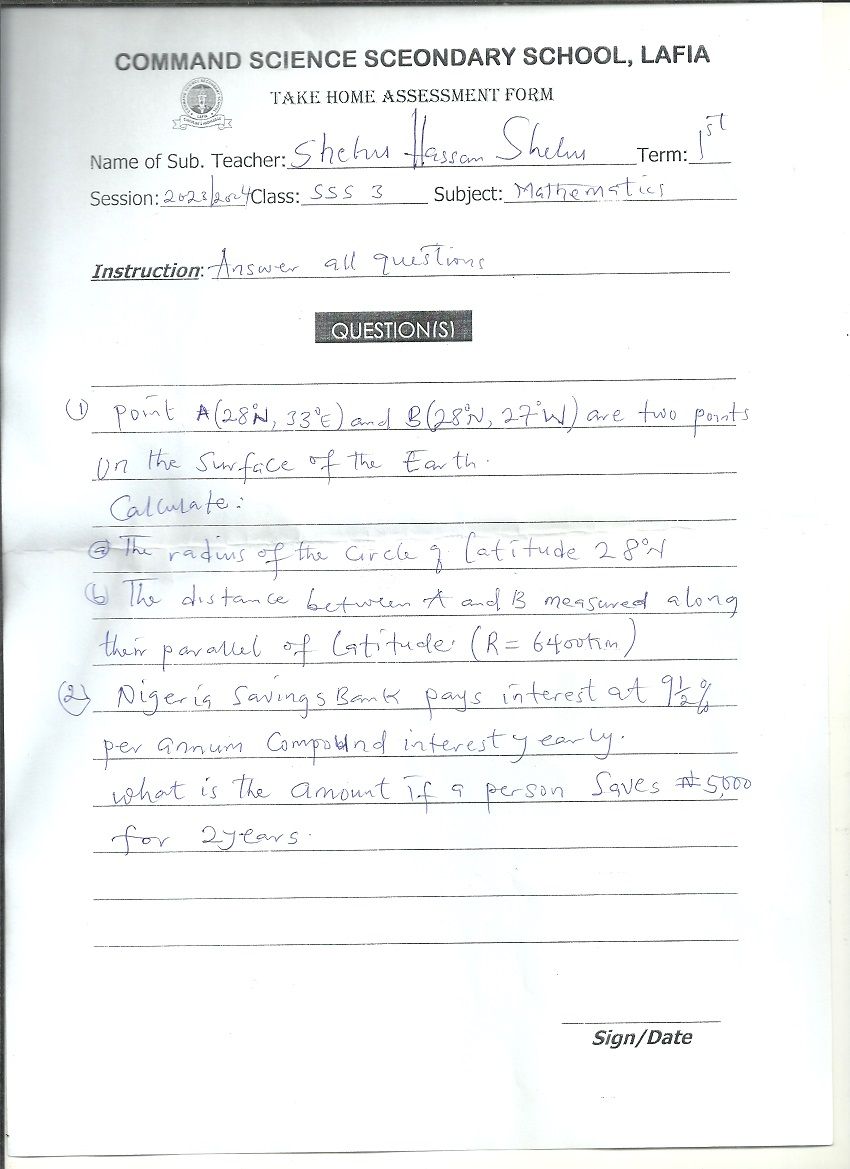 COMMAND SCIENCE SCEONDARY SCHOOL, LAFIA
TAKE HOME ASSESSMENT FORM
Name of Sub. Teacher: Shehu Hassan Shehu Term: 1st
Session: 2023/2024 Class: SSS 3 Subject: Mathematics
Instruction: Answer all questions
QUESTION(S)
(1) Point A(28°N, 33°E) and B(28°N, 27°W) are two points
on the surface of the Earth.
Calculate:
(a) The radius of the circle of latitude 28°N
(b) The distance between A and B measured along
their parallel of latitude. (R = 6400km)
(2) Nigeria Savings Bank pays interest at 9½%
per annum Compound interest yearly.
what is the amount if a person saves ₦5,000
for 2years.
Sign/Date